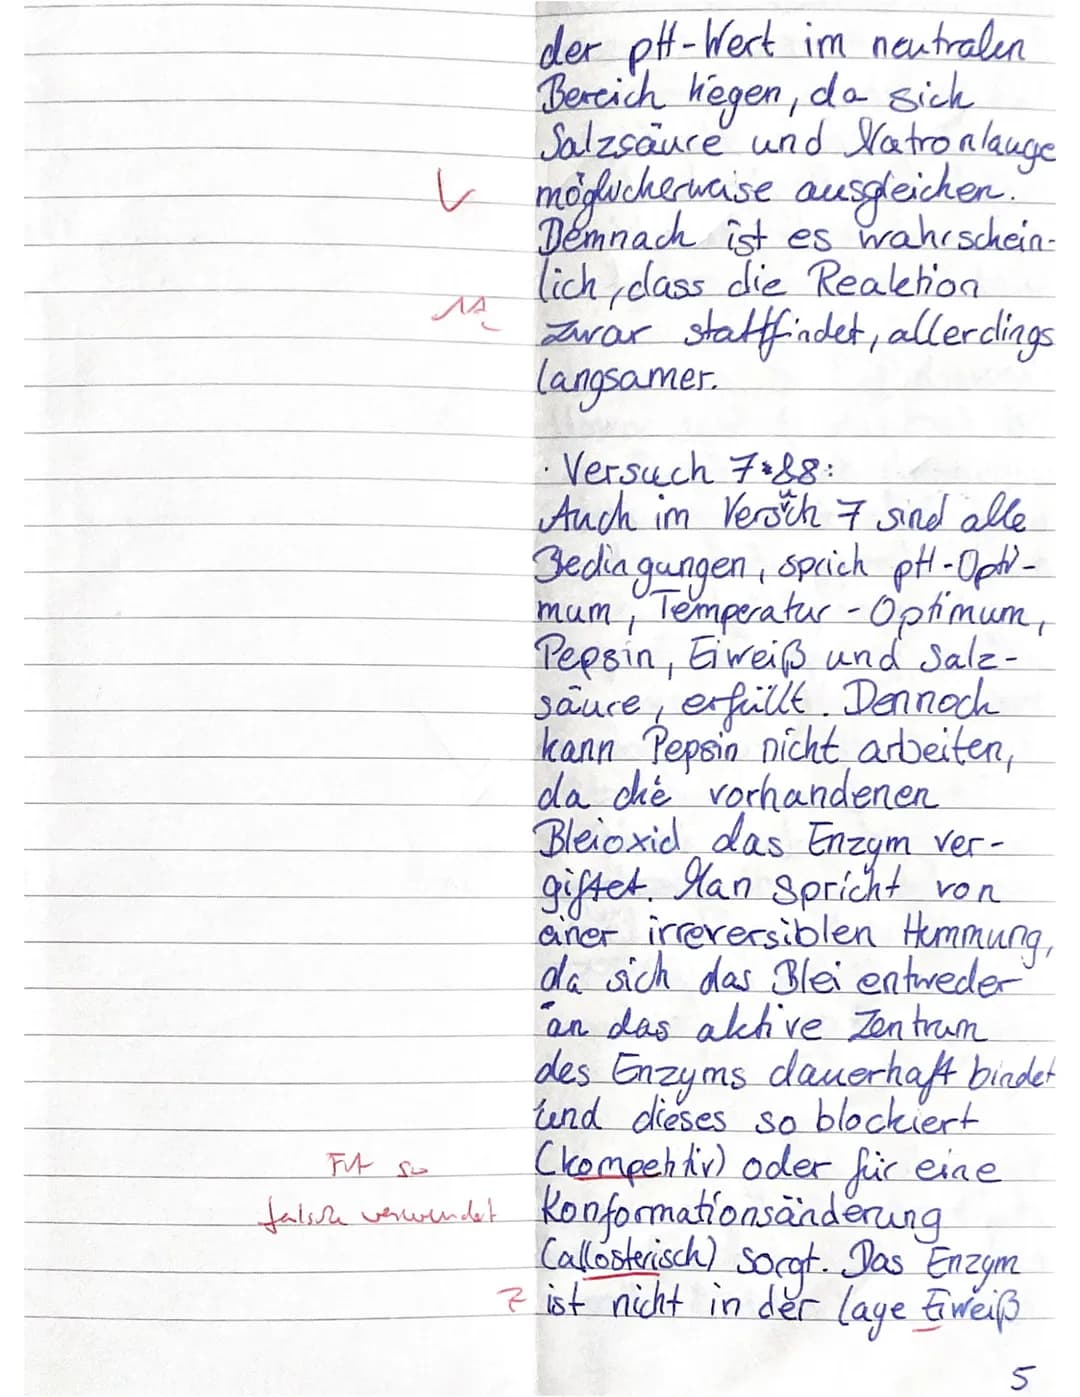 der pH-Wert im neutralen
Bereich liegen, da sich
Salzsäure und Natronlauge
möglicherweise ausgleichen.
Demnach ist es wahrschein-
lich, dass die Reaktion
zwar stattfindet, allerdings
langsamer.
· Versuch 7&8:
Auch im Versuch 7 sind alle
Bedingungen, sprich pH-Opti-
mum, Temperatur-Optimum,
Pepsin, Eiweiß und Salz-
säure, erfüllt. Dennoch
kann Pepsin nicht arbeiten,
da die vorhandenen
Bleioxid das Enzym ver-
giftet. Man spricht von
einer irreversiblen Hemmung,
da sich das Blei entweder
an das aktive Zentrum
des Enzyms dauerhaft bindet
und dieses so blockiert
(kompetitiv) oder für eine
Konformationsänderung
(allosterisch) sorgt. Das Enzym
ist nicht in der Lage Eiweiß
so
falsch verwendet
Z
5